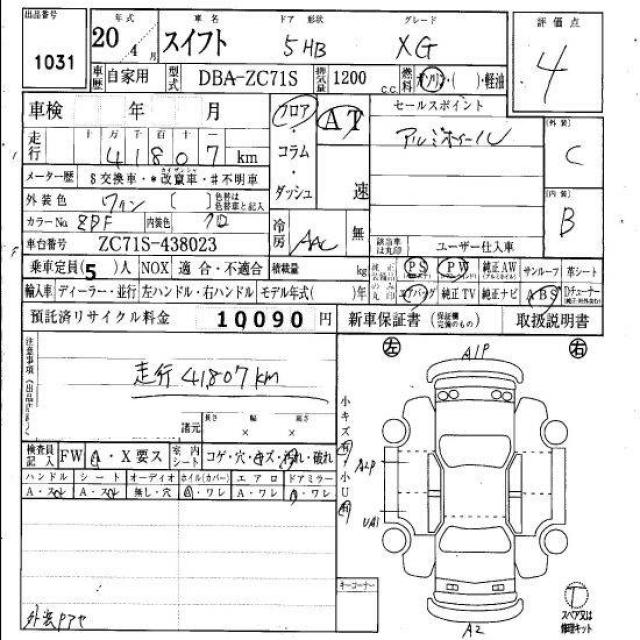 出品番号 年式 車名 ドア 形状 グレード 評価点
1031 20年 4月 スイフト 5HB XG 4
車歴 自家用 型式 DBA-ZC71S 排気量 1200 c.c. 燃料 ガソリン・( )・軽油
車検 年 月 フロア AT セールスポイント 外装
走行 十万千百十一 コラム アルミホイール C
41807 km ダッシュ 速
メーター歴 §交換車・*改竄車・#不明車 内装
外装色 ワイン [ ] 色替は色替車と記入 B
カラーNo. ZPF 内装色 クロ 冷房 AAC 無 該当車は丸印 ユーザー仕入車
車台番号 ZC71S-438023
乗車定員(5)人 NOX 適合・不適合 積載量 kg PS PW 純正AW サンルーフ 革シート
輸入車 ディーラー・並行 左ハンドル・右ハンドル モデル年式( )年 エアバッグ 純正TV 純正ナビ ABS Dチューナー
預託済リサイクル料金 10090 円 新車保証書 (保証欄完備のもの) 取扱説明書
注意事項 左 右
走行 41807km A1P
諸元 長さ 幅 高さ
× ×
小キズ有 小U有
検査員記入 FW A・X要ス 室内シート コゲ・穴・キズ・汚れ・破れ A2P
ハンドル シート オーディオ ホイル(カバー) エアロ ドアミラー
A・スレ A・スレ 無し・穴 A・ワレ A・ワレ A・ワレ UA1
キーコーナー
T
スペア又は修理キット
A2